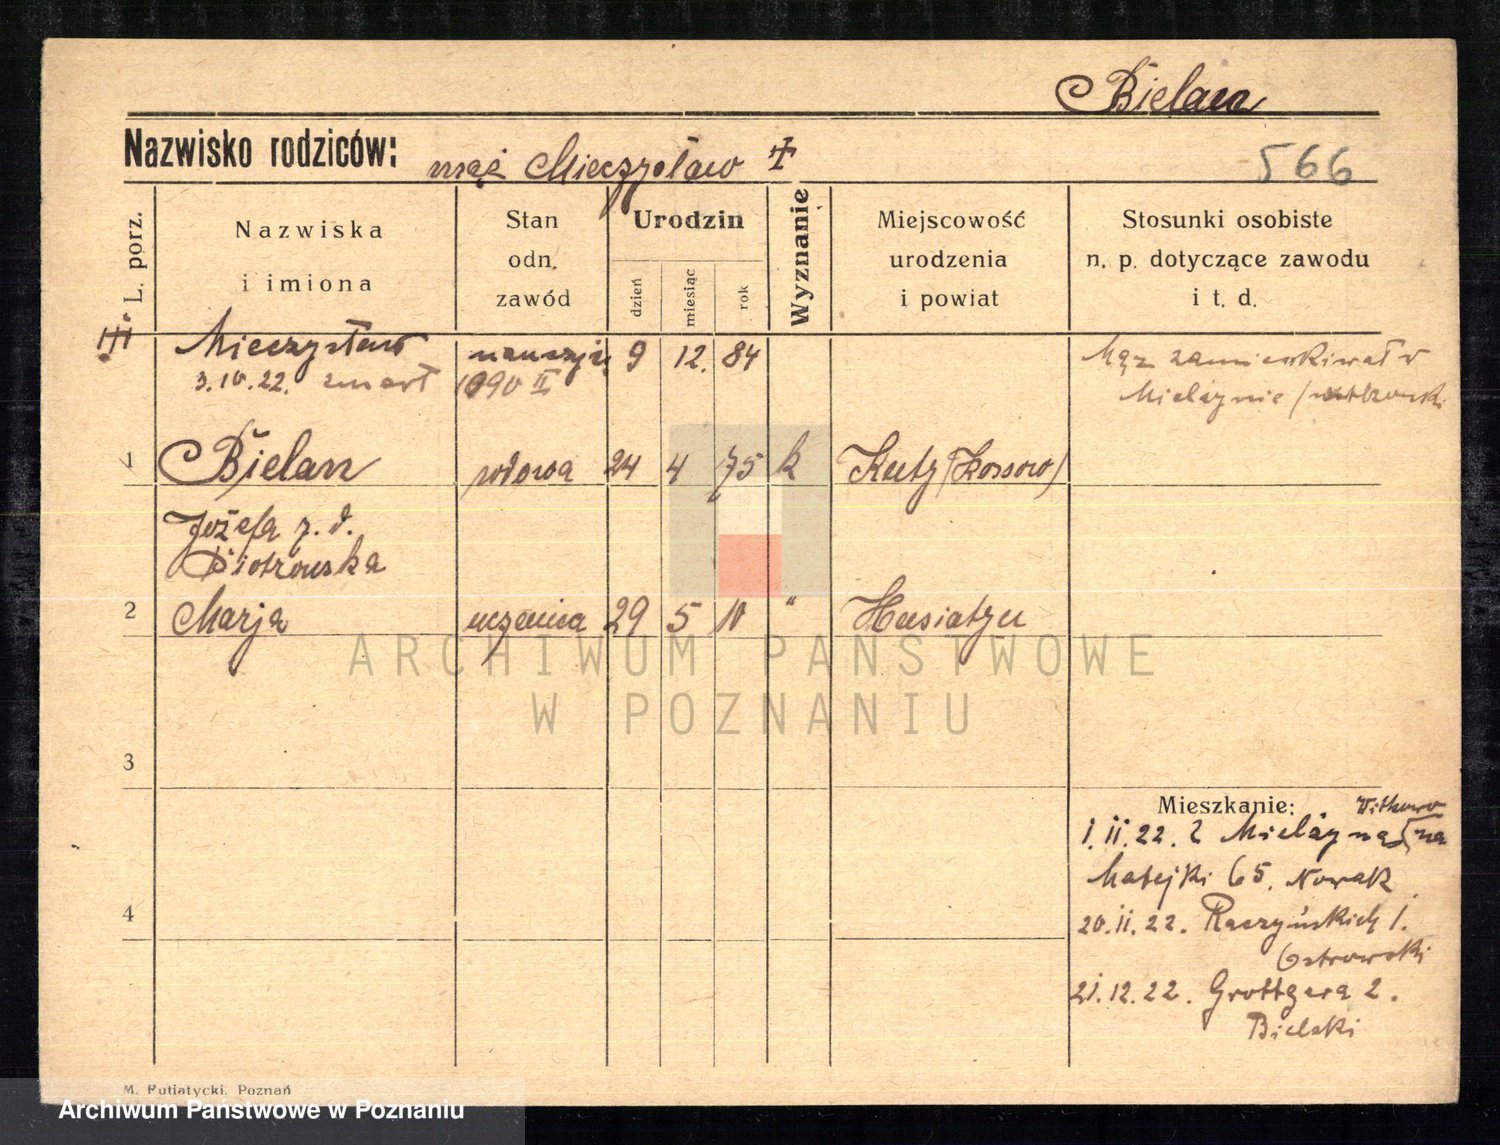 Bielan
Nazwisko rodziców: mąż Mieczysław
566
L. porz.
Nazwiska
i imiona
Stan
odn.
zawód
Urodzin
dzień
miesiąc
rok
Wyznanie
Miejscowość
urodzenia
i powiat
Stosunki osobiste
n. p. dotyczące zawodu
i t. d.
Mieczysław 9 12. 84 Mąż zamieszkiwał w
3.10.22. zmarł 1090 II Mielżynie
1 Bielan wdowa 24 4 75 k Kuty (Kossow)
Józefa z. d.
Piotrowska
2 Marja uczenica 29 5 10 " Husiatyn
3
Mieszkanie: Witkowo
1.II.22. z Mielżyna na
Matejki 65. Nowak
4
20.II.22. Raczyńskich 1.
Ostrowski
21.12.22. Grottgera 2.
Bielski
M. Putiatycki. Poznań
ARCHIWUM PAŃSTWOWE
W POZNANIU
Archiwum Państwowe w Poznaniu